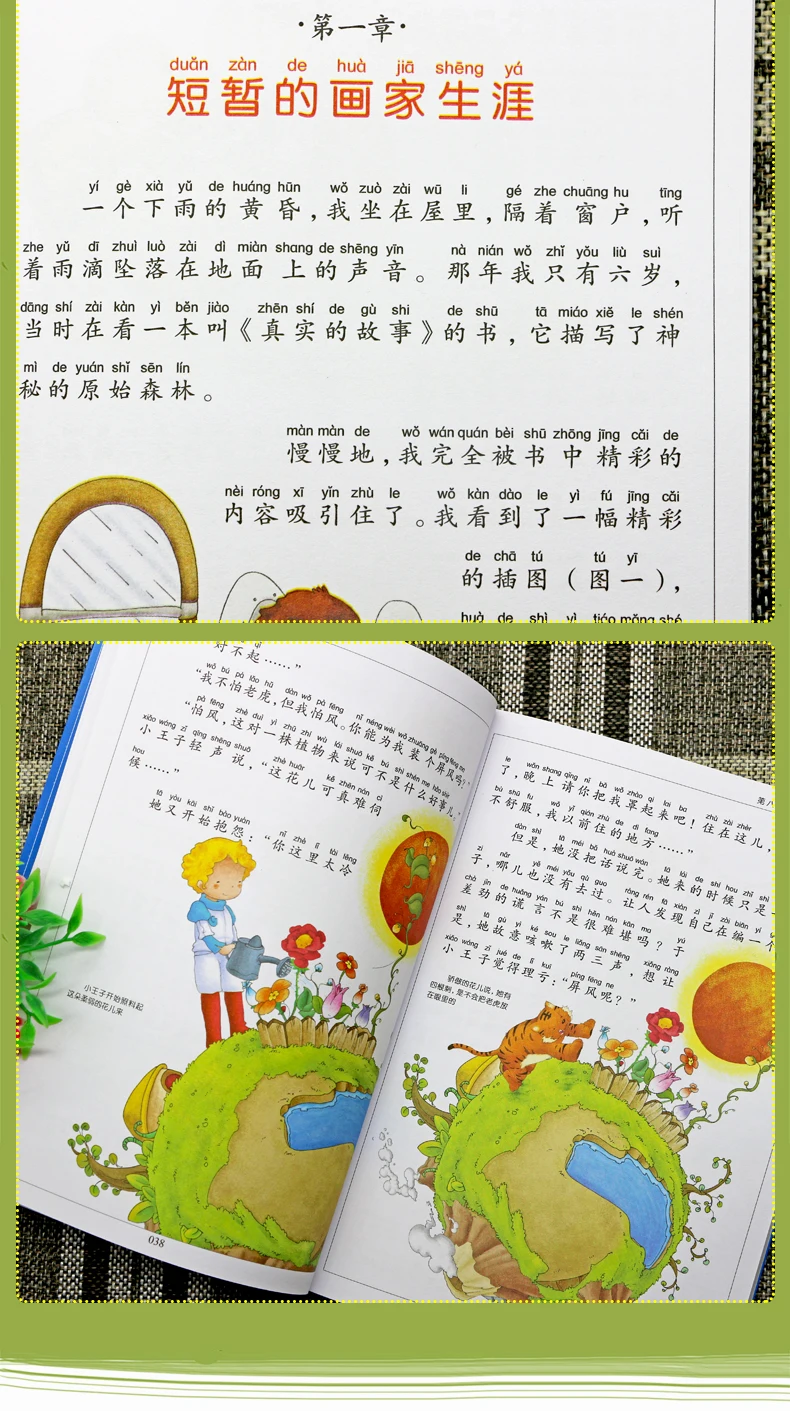 ·第一章·
duǎn zàn de huà jiā shēng yá
短暂的画家生涯
yí gè xià yǔ de huáng hūn wǒ zuò zài wū li gé zhe chuāng hu tīng
一个下雨的黄昏，我坐在屋里，隔着窗户，听
zhe yǔ dī zhuì luò zài dì miàn shang de shēng yīn nà nián wǒ zhǐ yǒu liù suì
着雨滴坠落在地面上的声音。那年我只有六岁，
dāng shí zài kàn yì běn jiào zhēn shí de gù shi de shū tā miáo xiě le shén
当时在看一本叫《真实的故事》的书，它描写了神
mì de yuán shǐ sēn lín
秘的原始森林。
màn màn de wǒ wán quán bèi shū zhōng jīng cǎi de
慢慢地，我完全被书中精彩的
nèi róng xī yǐn zhù le wǒ kàn dào le yì fú jīng cǎi
内容吸引住了。我看到了一幅精彩
de chā tú tú yī
的插图（图一），
huà de shì yì tiáo mǎng shé
对不起……”
“我不怕老虎，但我怕风。你能为我装个屏风吗？”
“怕风，这对一株植物来说可不是什么好事儿。”
小王子轻声说，“这花儿可真难伺
候……”
她又开始抱怨：“你这里太冷
小王子开始照料起
这朵美丽的花儿来
038
了，晚上请你把我罩起来吧！住在这儿，
不舒服，我以前住的地方……”
但是，她没把话说完。她来的时候只是一
子，哪儿也没有去过。让人发现自己在编一个
差劲的谎言不是很难堪吗？于
是，她故意咳嗽了两三声，想让
小王子觉得理亏：“屏风呢？”
骄傲的花儿说，她有
四根刺，是不会把老虎放
在眼里的